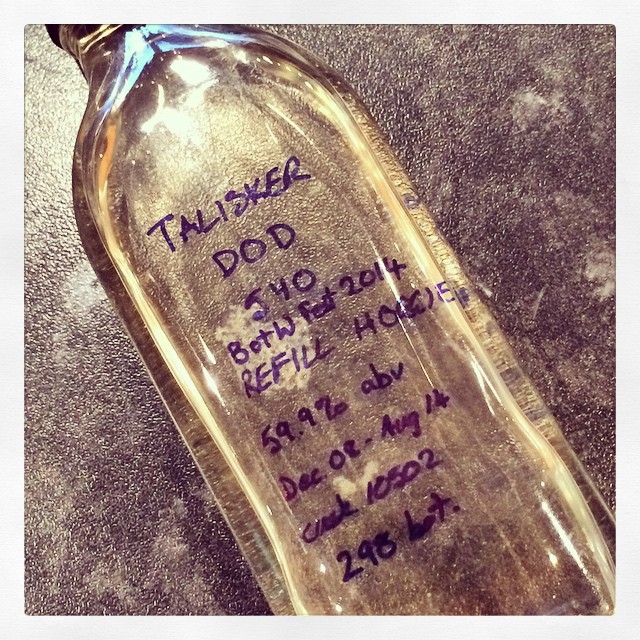 TALISKER
DOD
5YO
BotW Fest 2014
REFILL HOGGIE
59.9% abv
Dec 08 - Aug 14
cask 10502
298 bot.